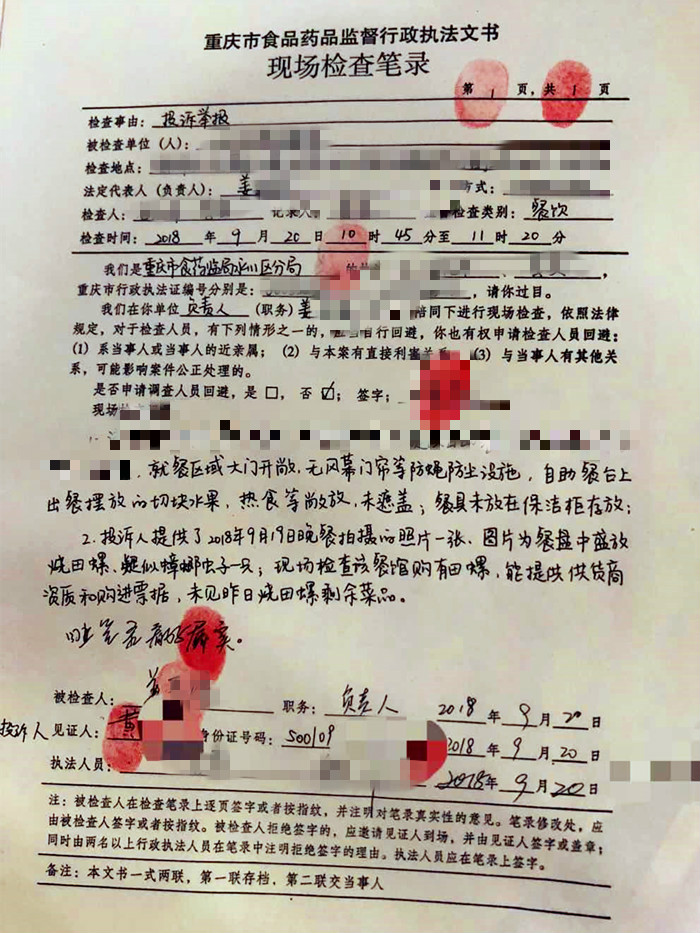 重庆市食品药品监督行政执法文书
现场检查笔录
第 1 页，共 1 页
检查事由：投诉举报
被检查单位（人）：
检查地点：
法定代表人（负责人）：姜 方式：
检查人： 记录人 检查类别：餐饮
检查时间：2018 年 9 月 20 日 10 时 45 分至 11 时 20 分
我们是重庆市食药监局永川区分局
重庆市行政执法证编号分别是： ，请你过目。
我们在你单位 负责人 （职务）姜 陪同下进行现场检查，依照法律
规定，对于检查人员，有下列情形之一的， 自行回避，你也有权申请检查人员回避：
（1）系当事人或当事人的近亲属；（2）与本案有直接利害关系 （3）与当事人有其他关
系，可能影响案件公正处理的。
是否申请调查人员回避，是 □，否 ☑； 签字；
现场
就餐区域大门开敞，无风幕门帘等防蝇防尘设施，自助餐台上
出餐摆放的切块水果，热食等敞放，未遮盖；餐具未放在保洁柜存放；
2.投诉人提供了2018年9月19日晚餐拍摄的照片一张、图片为餐盘中盛放
烧田螺、疑似蟑螂虫子一只；现场检查该餐馆购有田螺，能提供供货商
资质和购进票据，未见昨日烧田螺剩余菜品。
属实。
被检查人：姜 职务： 负责人 2018 年 9 月 20 日
投诉人 见证人：黄 身份证号码：500109 2018 年 9 月 20 日
执法人员： 2018年 9 月 20 日
注：被检查人在检查笔录上逐页签字或者按指纹，并注明对笔录真实性的意见。笔录修改处，应
由被检查人签字或者按指纹。被检查人拒绝签字的，应邀请见证人到场，并由见证人签字或盖章；
同时由两名以上行政执法人员在笔录中注明拒绝签字的理由。执法人员应在笔录上签字。
备注：本文书一式两联，第一联存档，第二联交当事人